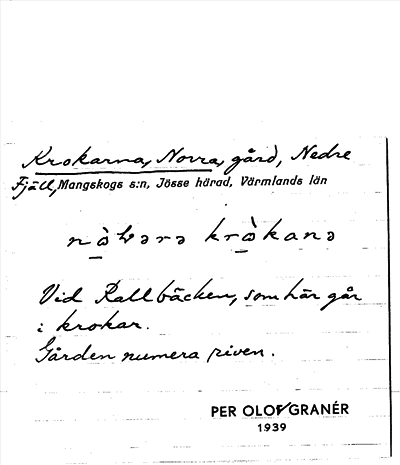 Krokarna, Norra, gård, Nedre
Fjäll, Mangskogs s:n, Jösse härad, Värmlands län
nò̱wərə krò̱kanə
Vid Rallbäcken, som här går
i krokar.
Gården numera riven.
PER OLOF GRANÉR
1939